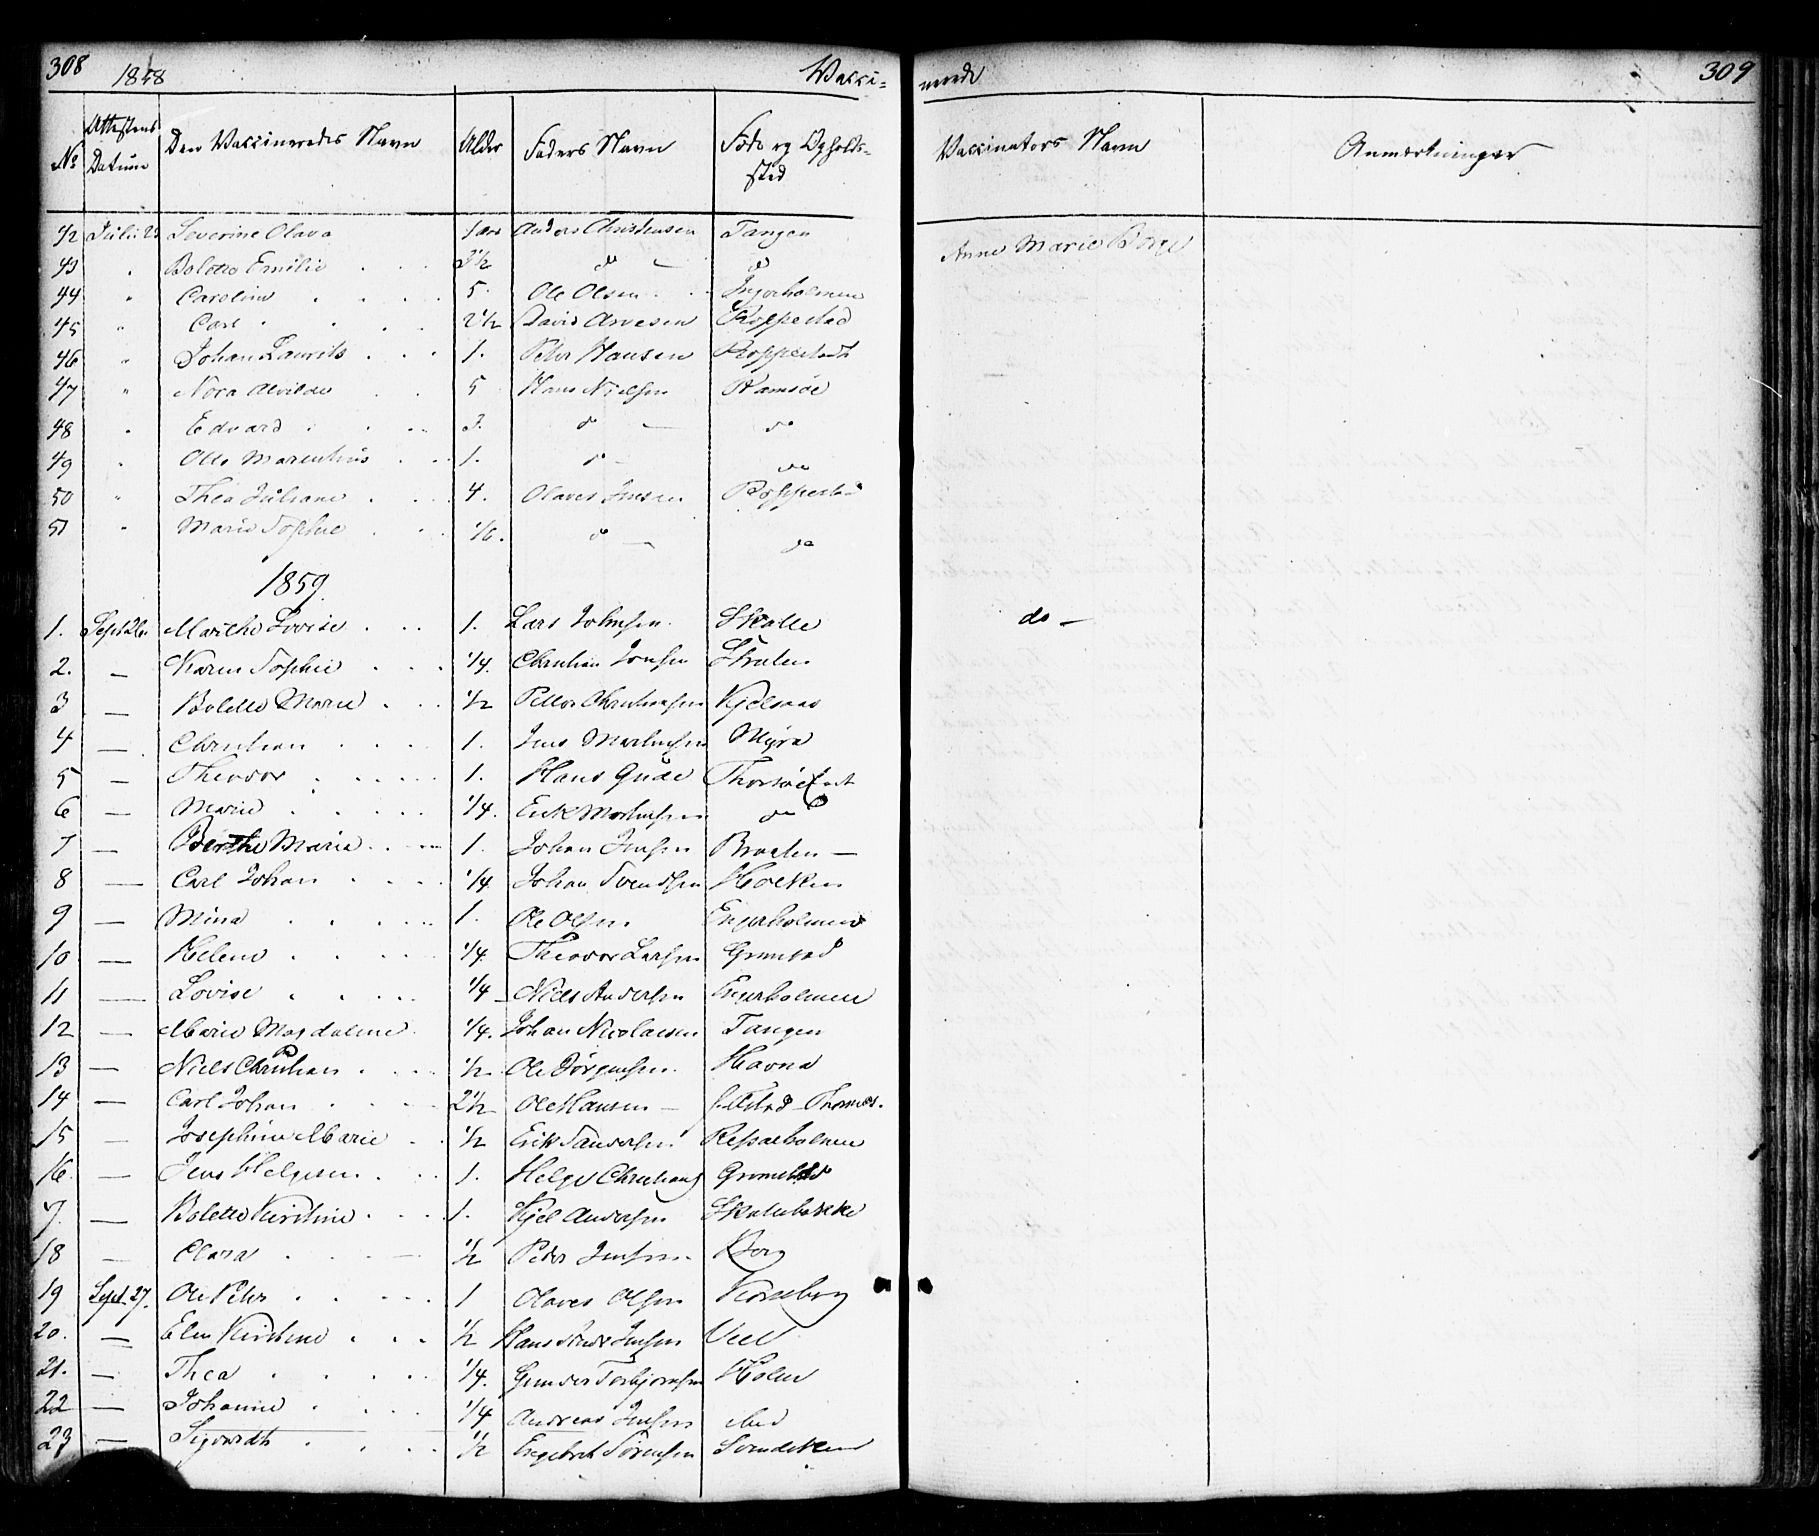 308 1858 Vacci-
nerede 309
No Attestens Datum Den Vaccineredes Navn Alder Faders Navn Føde og Opholds-sted Vaccinators Navn Anmærkninger
42 Juli 23 Severine Olava 1 aar Anders Christensen Tangen Anne Marie Borge
43 " Bolette Emilie . . . 2½ do — do
44 " Caroline . . . . 5. Ole Olsen . . Ingerholmen
45 " Carl . . . . 2½ David Arvesen Roppestad
46 " Johan Laurits . . . 1. Peter Hansen Roppestadt
47 " Nora Alvilde . . 5 Hans Nielsen Ramsøe
48 " Edvard . . . 3. do — do
49 " Otto Marenthius . . . 1. do - do
50 " Thea Juliane . . . 4. Olaves Jensen Roppestad
51 " Marie Sophie . . . 1/6. do — do
1859.
1. Sept 26. Marthe Lovise . . . 1. Lars Johnsen. Skalle do —
2. — Karen Sophie . . . 1/4. Christian Jonsen
3 — Bolette Marie . . . 1/2 Petter Christensen Kjelsaas
4 — Christian . . . . 1. Jens Martinsen Myra
5 — Theodor . . . . 1. Hans Gude Thorsøe
6 — Marie . . . . 1/4. Erik Martinsen do
7 — Berthe Maria . . . 1. Johan Jensen Braaten —
8 — Carl Johan . . . . 1/4 Johan Svendsen
9 — Mina . . . . 1. Ole Olsen Engerholmen
10 — Helene . . . . 1/4. Theodor Larsen Grimstad
11 — Lovise . . . 1/4 Niels Andersen Engerholmen
12 — Marie Magdalene. 1/4. Johan Nicolaisen Tangen
13 — Niels Christian . . . 1/2. Ole Jörgensen. Havna
14 — Carl Johan . . . 2½ Ole Hansen — Thomes.
15 — Josephine Marie . . 1/2 Erik Andersen
16. — Jens Helgesen . . 1. Helge Christians Grimstad
7. — Bolette Kirstine . . . 1. Kjel Andersen Skalebakke
18 — Clara . . . 1/2 Peder Jensen Borg
19 Sept. 27. Ole Peter . . . . 1 Olaves Olsen Korseborg
20. — Elen Kirstine . . . 1/2 Hans Jensen Veel
21. — Thea . . . . . 1/4. Gunder Torbjornsen Holm
22 — Johanne . . . . 1/4 Andreas Jensen
23 — Sigvardt . . . . 1/2 Engebret Sörensen